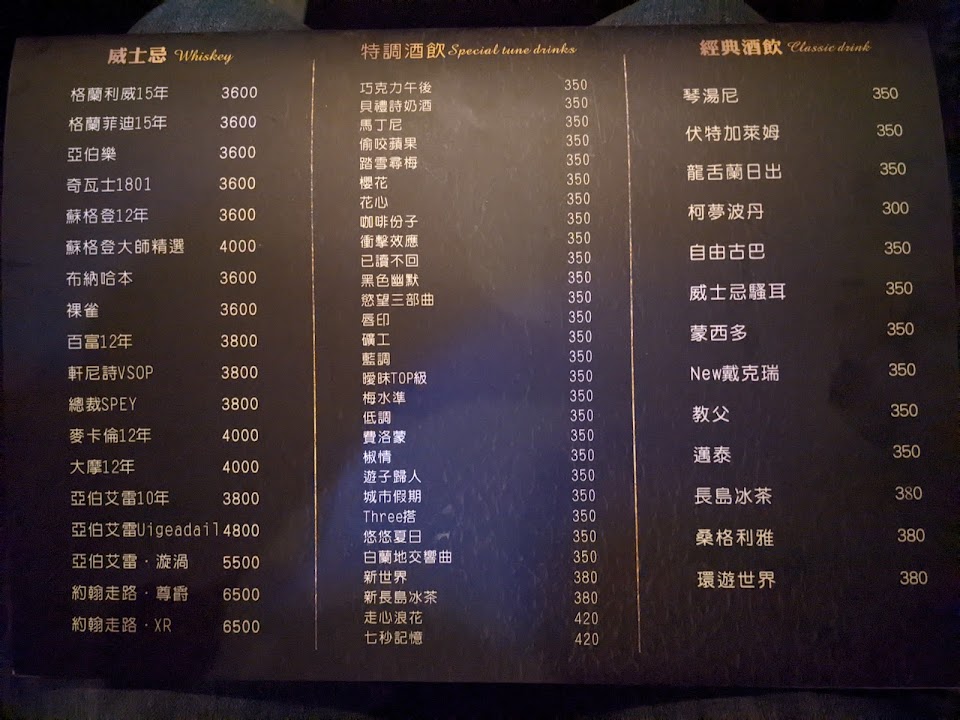 威士忌 Whiskey
格蘭利威15年 3600
格蘭菲迪15年 3600
亞伯樂 3600
奇瓦士1801 3600
蘇格登12年 3600
蘇格登大師精選 4000
布納哈本 3600
裸雀 3600
百富12年 3800
軒尼詩VSOP 3800
總裁SPEY 3800
麥卡倫12年 4000
大摩12年 4000
亞伯艾雷10年 3800
亞伯艾雷Uigeadail 4800
亞伯艾雷·漩渦 5500
約翰走路·尊爵 6500
約翰走路·XR 6500
特調酒飲 Special tune drinks
巧克力午後 350
貝禮詩奶酒 350
馬丁尼 350
偷咬蘋果 350
踏雪尋梅 350
櫻花 350
花心 350
咖啡份子 350
衝擊效應 350
已讀不回 350
黑色幽默 350
慾望三部曲 350
唇印 350
礦工 350
藍調 350
曖昧TOP級 350
梅水準 350
低調 350
費洛蒙 350
椒情 350
遊子歸人 350
城市假期 350
Three搭 350
悠悠夏日 350
白蘭地交響曲 350
新世界 380
新長島冰茶 380
走心浪花 420
七秒記憶 420
經典酒飲 Classic drink
琴湯尼 350
伏特加萊姆 350
龍舌蘭日出 350
柯夢波丹 300
自由古巴 350
威士忌騷耳 350
蒙西多 350
New戴克瑞 350
教父 350
邁泰 350
長島冰茶 380
桑格利雅 380
環遊世界 380